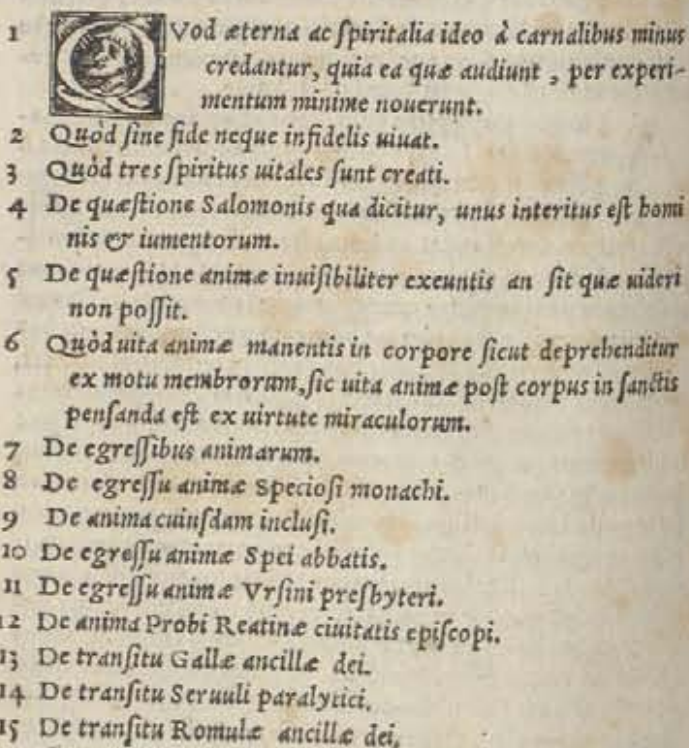 1 QVod æterna ac ſpiritalia ideo à carnalibus minus
credantur, quia ea quæ audiunt, per experi-
mentum minime nouerunt.
2 Quòd ſine fide neque infidelis uiuat.
3 Quòd tres ſpiritus uitales ſunt creati.
4 De quæſtione Salomonis qua dicitur, unus interitus eſt homi
nis & iumentorum.
5 De quæſtione animæ inuiſibiliter exeuntis an ſit quæ uideri
non poſſit.
6 Quòd uita animæ manentis in corpore ſicut deprehenditur
ex motu membrorum, ſic uita animæ poſt corpus in ſanctis
penſanda eſt ex uirtute miraculorum.
7 De egreſſibus animarum.
8 De egreſſu animæ Specioſi monachi.
9 De anima cuiuſdam incluſi.
10 De egreſſu animæ Spei abbatis.
11 De egreſſu animæ Vrſini preſbyteri.
12 De anima Probi Reatinæ ciuitatis epiſcopi.
13 De tranſitu Gallæ ancillæ dei.
14 De tranſitu Seruuli paralytici.
15 De tranſitu Romulæ ancillæ dei.